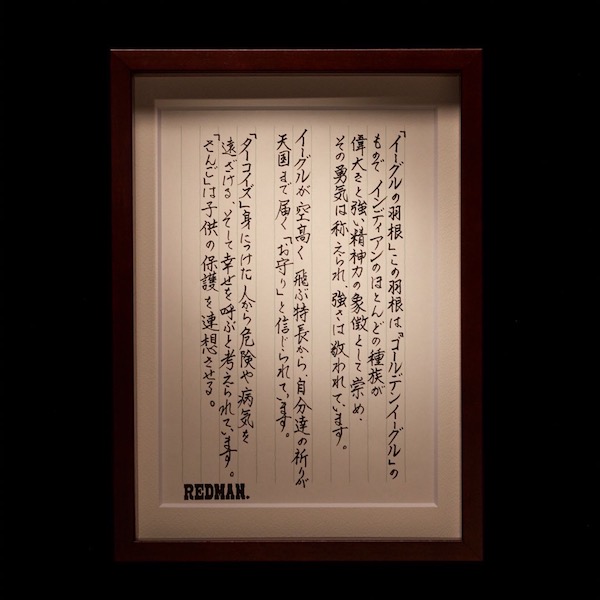 「イーグルの羽根」この羽根は、「ゴールデンイーグル」の
もので インディアンのほとんどの種族が
偉大さと強い精神力の象徴として崇め、
その勇気は称えられ、強さは敬われています。
イーグルが空高く 飛ぶ特長から、自分達の祈りが
天国まで届く「お守り」と信じられています。
「ターコイズ」身につけた人から危険や病気を
遠ざける、そして幸せを呼ぶと考えられています。
「さんご」は子供の保護を連想させる。
REDMAN.